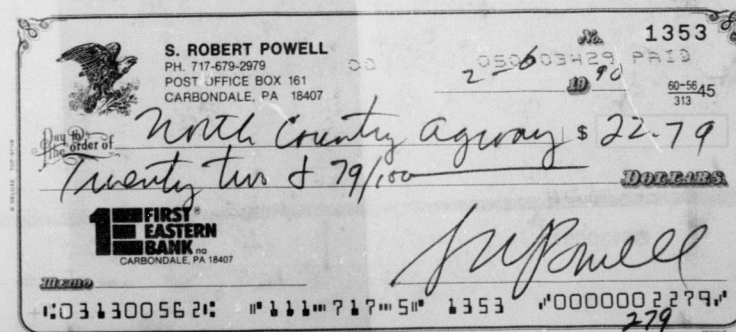 No. 1353
S. ROBERT POWELL
PH. 717-679-2979
POST OFFICE BOX 161
CARBONDALE, PA 18407
00 050 03429 PAID
2-6 1990
60-5645
313
Pay to the order of North Country Agway $ 22.79
Twenty two & 79/100 DOLLARS
1E FIRST EASTERN BANK na
CARBONDALE, PA 18407
MEMO
S R Powell
⑆031300562⑆ ⑈111⑉717⑉5⑈ 1353 ⑈0000002279⑈
279